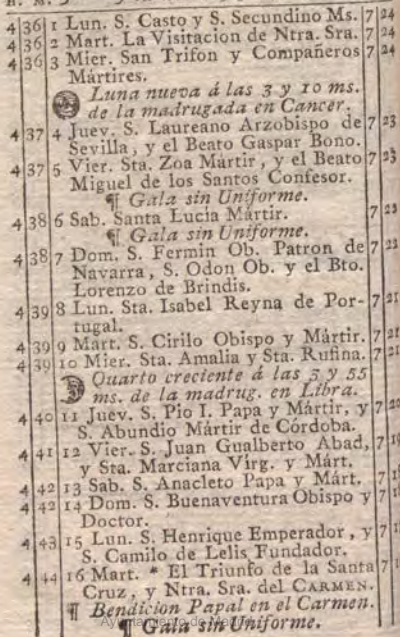 4 36 1 Lun. S. Casto y S. Secundino Ms. 7 24
4 36 2 Mart. La Visitacion de Ntra. Sra. 7 24
4 36 3 Mier. San Trifon y Compañeros 7 24
Mártires.
Luna nueva á las 3 y 10 ms.
de la madrugada en Cancer.
4 37 4 Juev. S. Laureano Arzobispo de 7 23
Sevilla, y el Beato Gaspar Bono.
4 37 5 Vier. Sta. Zoa Mártir, y el Beato 7 23
Miguel de los Santos Confesor.
¶ Gala sin Uniforme.
4 38 6 Sab. Santa Lucía Mártir. 7 23
¶ Gala sin Uniforme.
4 38 7 Dom. S. Fermin Ob. Patron de 7 23
Navarra, S. Odon Ob. y el Bto.
Lorenzo de Brindis.
4 39 8 Lun. Sta. Isabel Reyna de Por- 7 21
tugal.
4 39 9 Mart. S. Cirilo Obispo y Mártir. 7 21
4 39 10 Mier. Sta. Amalia y Sta. Rufina. 7 21
Quarto creciente á las 3 y 55
ms. de la madrug. en Libra.
4 40 11 Juev. S. Pio I. Papa y Mártir, y 7 20
S. Abundio Mártir de Córdoba.
4 41 12 Vier. S. Juan Gualberto Abad, 7 19
y Sta. Marciana Virg. y Márt.
4 42 13 Sab. S. Anacleto Papa y Márt. 7
4 42 14 Dom. S. Buenaventura Obispo y 7
Doctor.
4 43 15 Lun. S. Henrique Emperador, y 7
S. Camilo de Lelis Fundador.
4 44 16 Mart. * El Triunfo de la Santa 7
Cruz, y Ntra. Sra. del CARMEN.
¶ Bendicion Papal en el Carmen.
¶ Gala sin Uniforme.
Ayuntamiento de Madrid